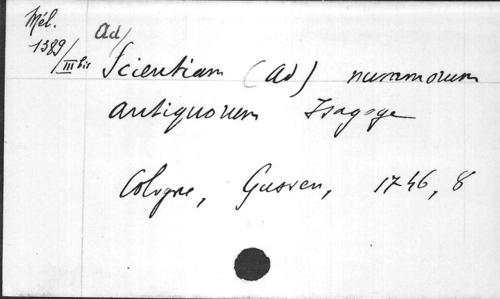 Mél.
1389/IIIbis
Ad/
Scientiam (Ad) nummorum
antiquorum Isagoge
Cologne, Gusven, 1746, 8